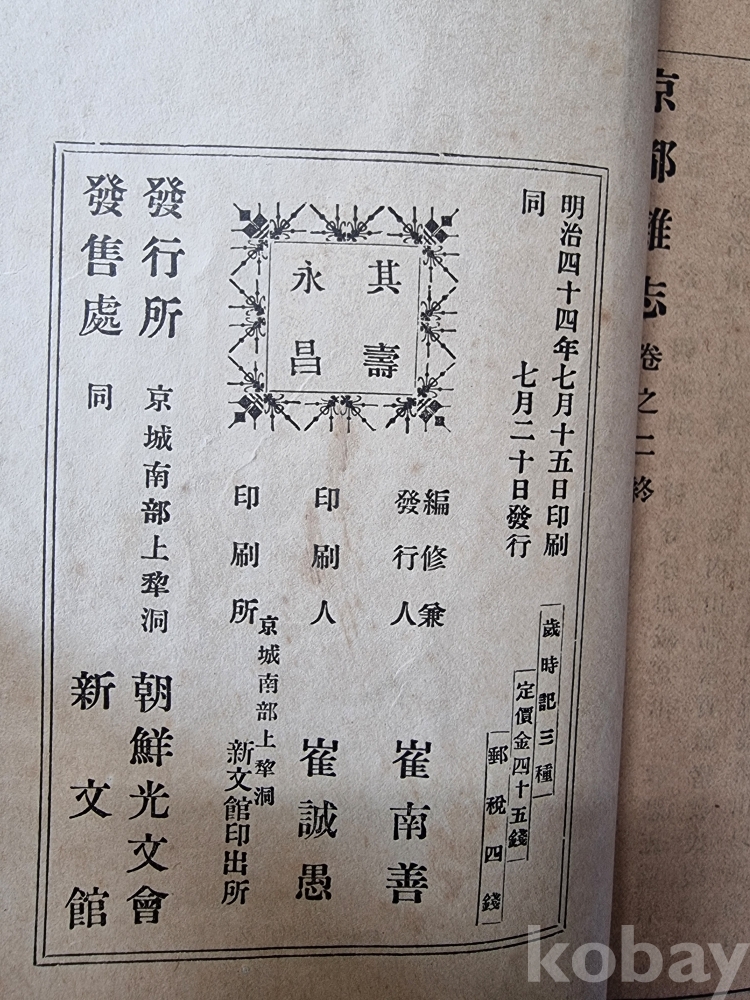 京都雜志 卷之二終
明治四十四年七月十五日印刷
同 七月二十日發行
歲時記三種
定價金四十五錢
郵稅四錢
其壽
永昌
編修兼
發行人 崔南善
印刷人 崔誠愚
京城南部上犂洞
印刷所 新文館印出所
發行所 京城南部上犂洞 朝鮮光文會
發售處 同 新文館
kobay